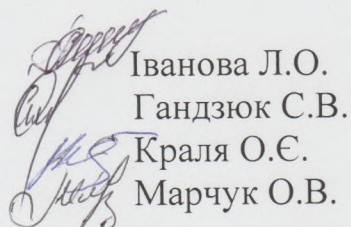 Іванова Л.О.
Гандзюк С.В.
Краля О.Є.
Марчук О.В.